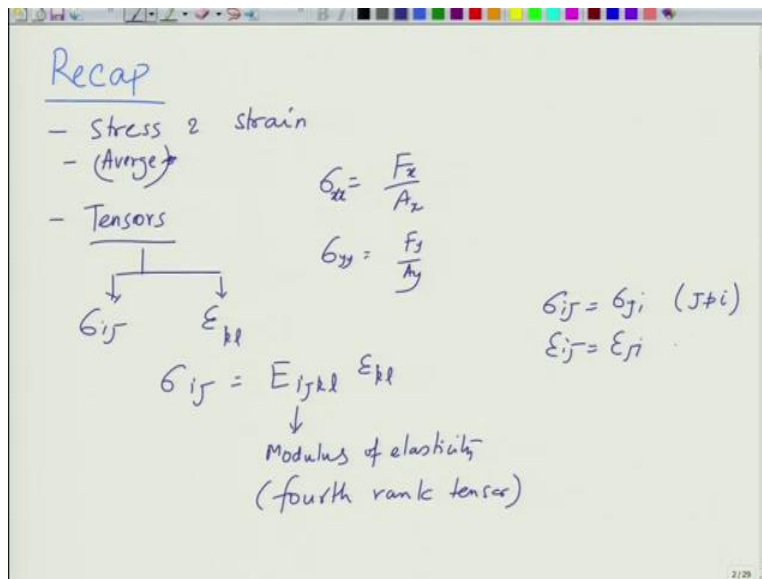 Recap
- Stress & strain
- (Averge)
σxx = Fx / Ax
- Tensors
σyy = Fy / Ay
σij εkl
σij = σji (j≠i)
εij = εji
σij = Eijkl εkl
Modulus of elasticity
(fourth rank tensor)
2/29